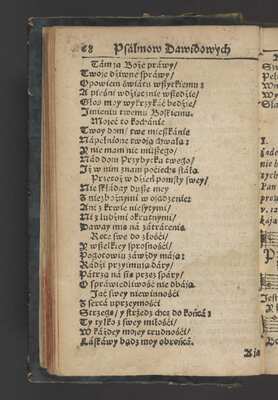 68 Psalmow Dawidowych
Tam ja Boże prawy/
Twoje dziwne sprawy/
Opowiem światu wszytkiemu:
A pieśni wdzięcznie wszędzie/
Głos moy wykrzykać będzie/
Imieniu twemu Boskiemu.
Mojeć to kochanie
Twoy dom/ twe mieszkanie
Napełnione twoją chwałą:
Nie mam nic milszego/
Nad dom Przybytku twego/
Iż w nim znam pociechę stałą.
Przetoż w dzień pomsty swey/
Nie składay dusze mey
Z niezbożnymi w osądzenie:
Ani z krwie niesytymi/
Ni z ludźmi okrutnymi/
Daway mię na zatrácenie.
Ręce swe do złości/
Y wszelkiey sprosności/
Pogotowiu záwżdy máją:
Rádzi przyimują dáry/
Pátrzą ná się przez spáry/
O spráwiedliwość nie dbáją.
Jać swey niewinności
Z serca uprzeymości
Strzegę/ y strzedz chcę do końcá:
Ty tylko z swey miłości/
W káżdey mojey trudności/
Łáskáwy bądź moy obrońcá.